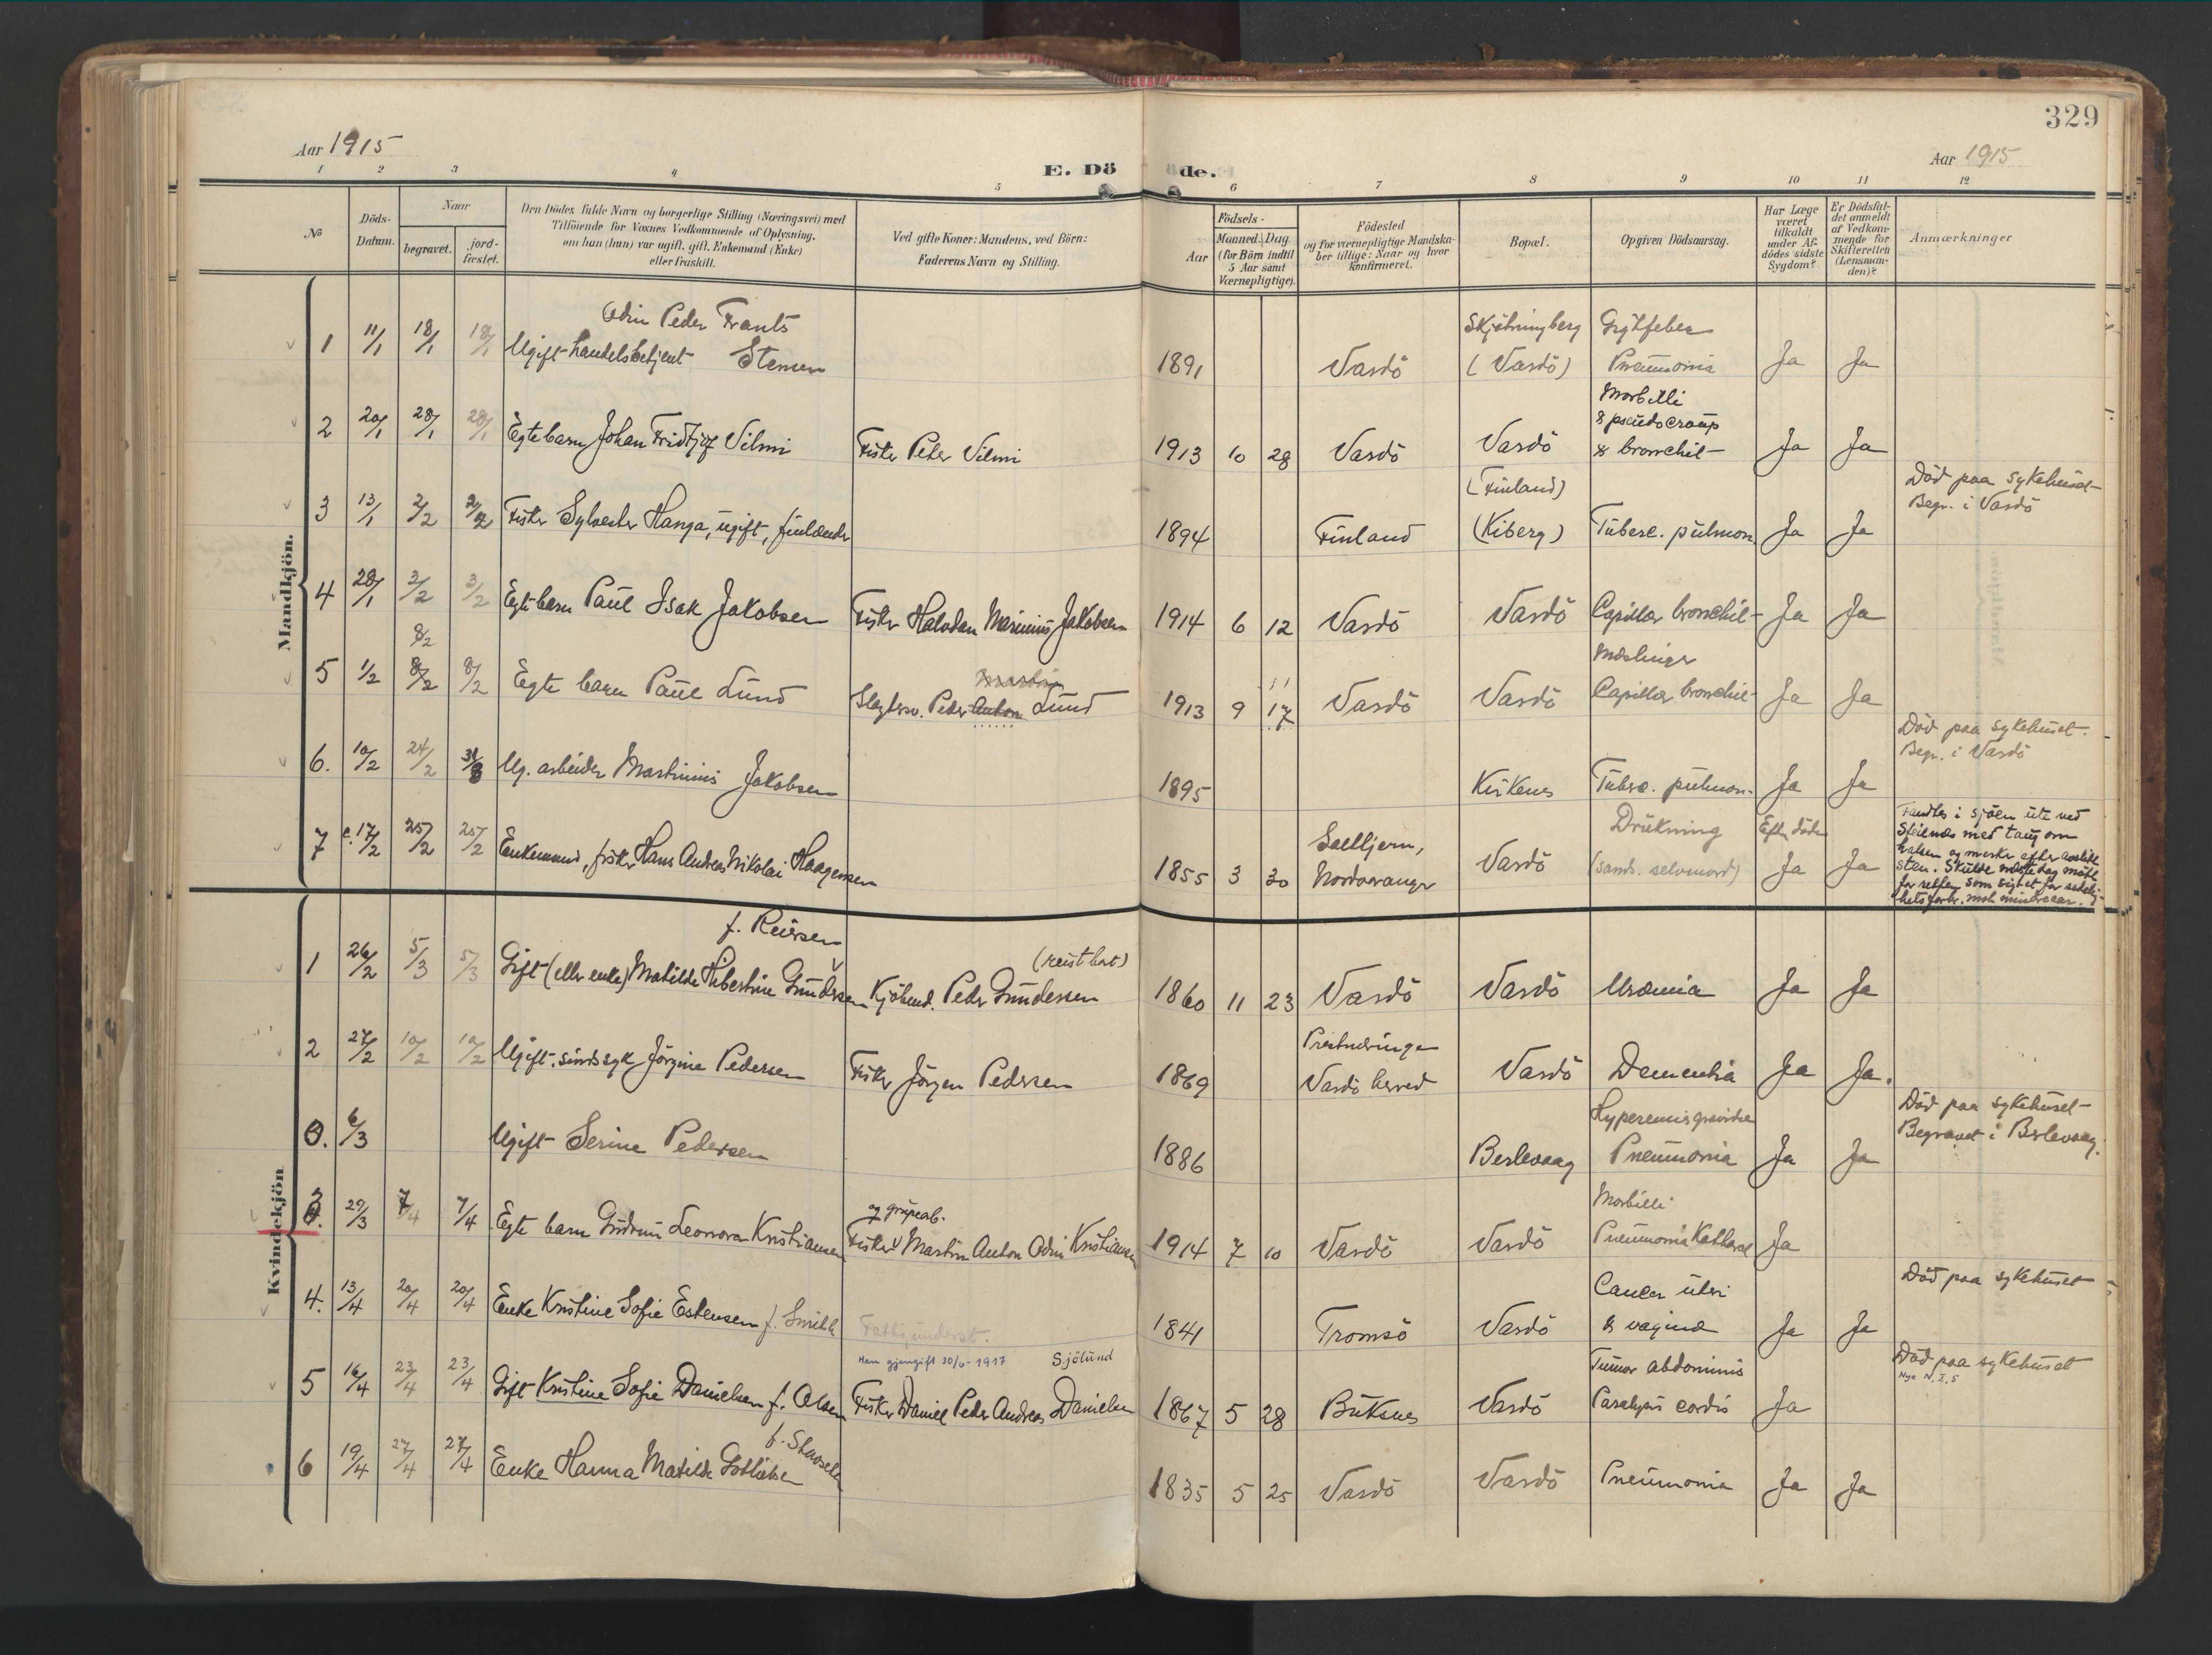 329
Aar 1915
E. Döde.
Aar 1915
1 2 3 4 5 6 7 8 9 10 11 12
No
Döds-Datum.
Naar
begravet.
jord-fæstet.
Den Dödes fulde Navn og borgerlige Stilling (Næringsvei) med
Tilföiende for Voxnes Vedkommende af Oplysning,
om han (hun) var ugift, gift, Enkemand (Enke)
eller fraskilt.
Ved gifte Koner: Mandens, ved Börn:
Faderens Navn og Stilling.
Födsels-
Aar
Maaned. Dag
(for Börn indtil
5 Aar samt
Værnepligtige).
Födested
og for værnepligtige Mandska-
ber tillige: Naar og hvor
konfirmeret.
Bopæl.
Opgiven Dödsaarsag.
Har Læge
været
tilkaldt
under Af-
dödes sidste
Sygdom?
Er Dödsfal-
det anmeldt
af Vedkom-
mende for
Skifteretten
(Lensman-
den)?
Anmærkninger
Mandkjön.
Odin Peder Frants Skjötningberg Grytfeber
1 11/1 18/1 18/1 Ugift handelsbetjent Stensen 1891 Vardö (Vardö) Pneumonia Ja Ja
Morbilli
& pseudocroup
2 20/1 28/1 28/1 Egte barn Johan Fridtjof Vilmi Fisker Peter Vilmi 1913 10 28 Vardö Vardö & bronchit Ja Ja
(Finland) Död paa sykehuset
Begr. i Vardö
3 13/1 2/2 2/2 Fisker Sylvester Hanga, ugift, finlænder 1894 Finland (Kiberg) Tuberc. pulmon. Ja Ja
4 28/1 3/2 3/2 Egte barn Paul Isak Jakobsen Fisker Halvdan Marinius Jakobsen 1914 6 12 Vardö Vardö Capillær bronchit Ja Ja
8/2 Martin 11 Mæslinger
5 1/2 8/2 8/2 Egte barn Paul Lund Slagtersv. Peder Anton Lund 1913 9 17 Vardö Vardö Capillær bronchit Ja Ja
Död paa sykehuset.
Begr. i Vardö
6. 10/2 24/2 Ug. arbeider Martinius Jakobsen 1895 Kirkenes Tuberc. pulmon. Ja Ja
Drukning Efter döde
7 c. 17/2 25/2 25/2 Enkemand, fisker Hans Andreas Nikolai Haagensen 1855 3 30 Nordvaranger Vardö (sands. selvmord) Ja Ja
Fandtes i sjöen ute ved
Steilnes med taug om
halsen og merke efter avslitt
sten. Skulde næste dag möte
for retten som sigtet for sedelig-
hetsforbr. mot mindreaar.
Kvindekjön
f. Reiersen (reist bort)
1 26/2 5/3 5/3 Gift (eller enke) Matilde Hibertine Gundersen Kjöbmd. Peder Gundersen 1860 11 23 Vardö Vardö Uræmia Ja Ja
2 27/2 10/2 10/2 Ugift, sindssyk Jörgine Pedersen Fisker Jörgen Pedersen 1869 Vardö herred Vardö Dementia Ja Ja.
Död paa sykehuset
Begravet i Berlevaag.
0. 6/3 Ugift Serine Pedersen 1886 Berlevaag Pneumonia Ja Ja
og grubearb. Morbilli
3. 29/3 7/4 7/4 Egte barn Gudrun Leonora Kristiansen Fisker Martin Anton Odin Kristiansen 1914 7 10 Vardö Vardö Pneumonia Katharal Ja
Cancer uteri Död paa sykehuset
4. 13/4 20/4 20/4 Enke Kristine Sofie Estensen f. Smith Fattigunderst. 1841 Tromsö Vardö & vaginæ Ja Ja
Han gjengift 30/6-1917 Sjölund Tumor abdominis Död paa sykehuset
5 16/4 23/4 23/4 Gift Kristine Sofie Danielsen f. Olsen Fisker Daniel Peder Andreas Danielsen 1867 5 28 Buksnes Vardö Paralysis cordis Ja
6 19/4 27/4 27/4 Enke Hanna Matilde Gotliebsen 1835 5 25 Vardö Vardö Pneumonia Ja Ja